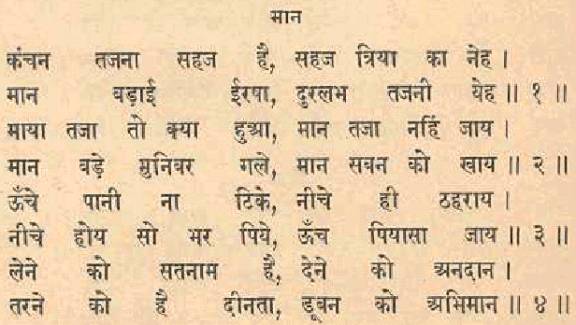 मान
कंचन तजना सहज है, सहज त्रिया का नेह ।
मान बड़ाई ईरषा, दुरलभ तजनी येह ॥ १ ॥
माया तजा तो क्या हुआ, मान तजा नहिं जाय ।
मान बड़े मुनिवर गले, मान सबन को खाय ॥ २ ॥
ऊँचे पानी ना टिके, नीचे ही ठहराय ।
नीचे होय सो भर पिये, ऊँच पियासा जाय ॥ ३ ॥
लेने को सतनाम है, देने को अनदान ।
तरने को है दीनता, डूबन को अभिमान ॥ ४ ॥